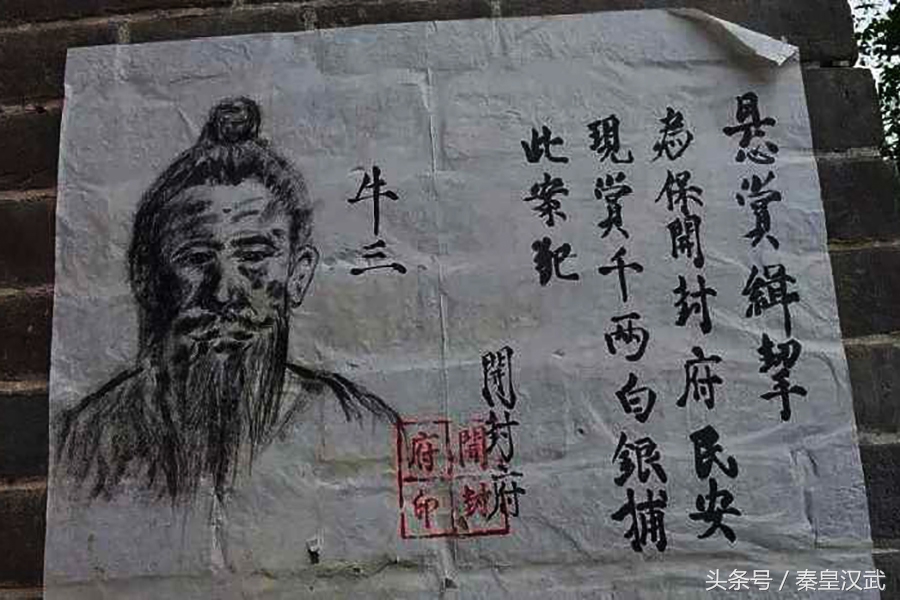 悬赏緝拏
為保開封府民安
現賞千两白銀捕
此案犯
開封府
開封
府印
牛三
头条号 / 秦皇汉武